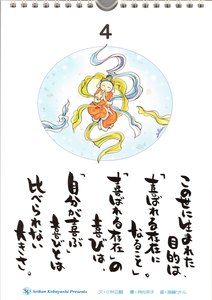 4
この世に生まれた
目的は
「喜ばれる存在に
なること」
「喜ばれる存在」の
喜びは、
「自分が喜ぶ
喜びとは
比べられない
大きさ。
Seikan Kobayashi Presents